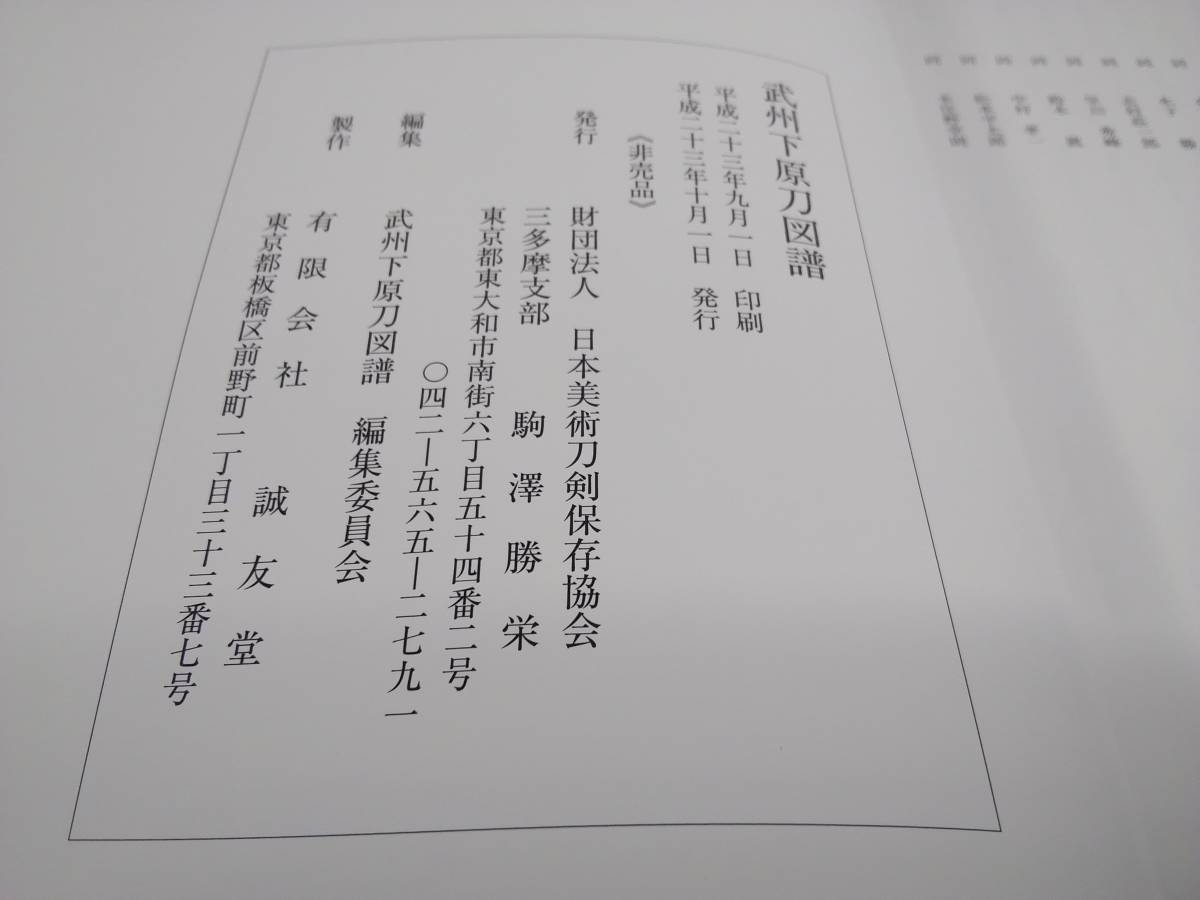 武州下原刀図譜
平成二十三年九月一日 印刷
平成二十三年十月一日 発行
《非売品》
発行 財団法人 日本美術刀剣保存協会
三多摩支部 駒澤勝栄
東京都東大和市南街六丁目五十四番二号
〇四二―五六五―二七九一
編集 武州下原刀図譜 編集委員会
製作 有限会社 誠友堂
東京都板橋区前野町一丁目三十三番七号